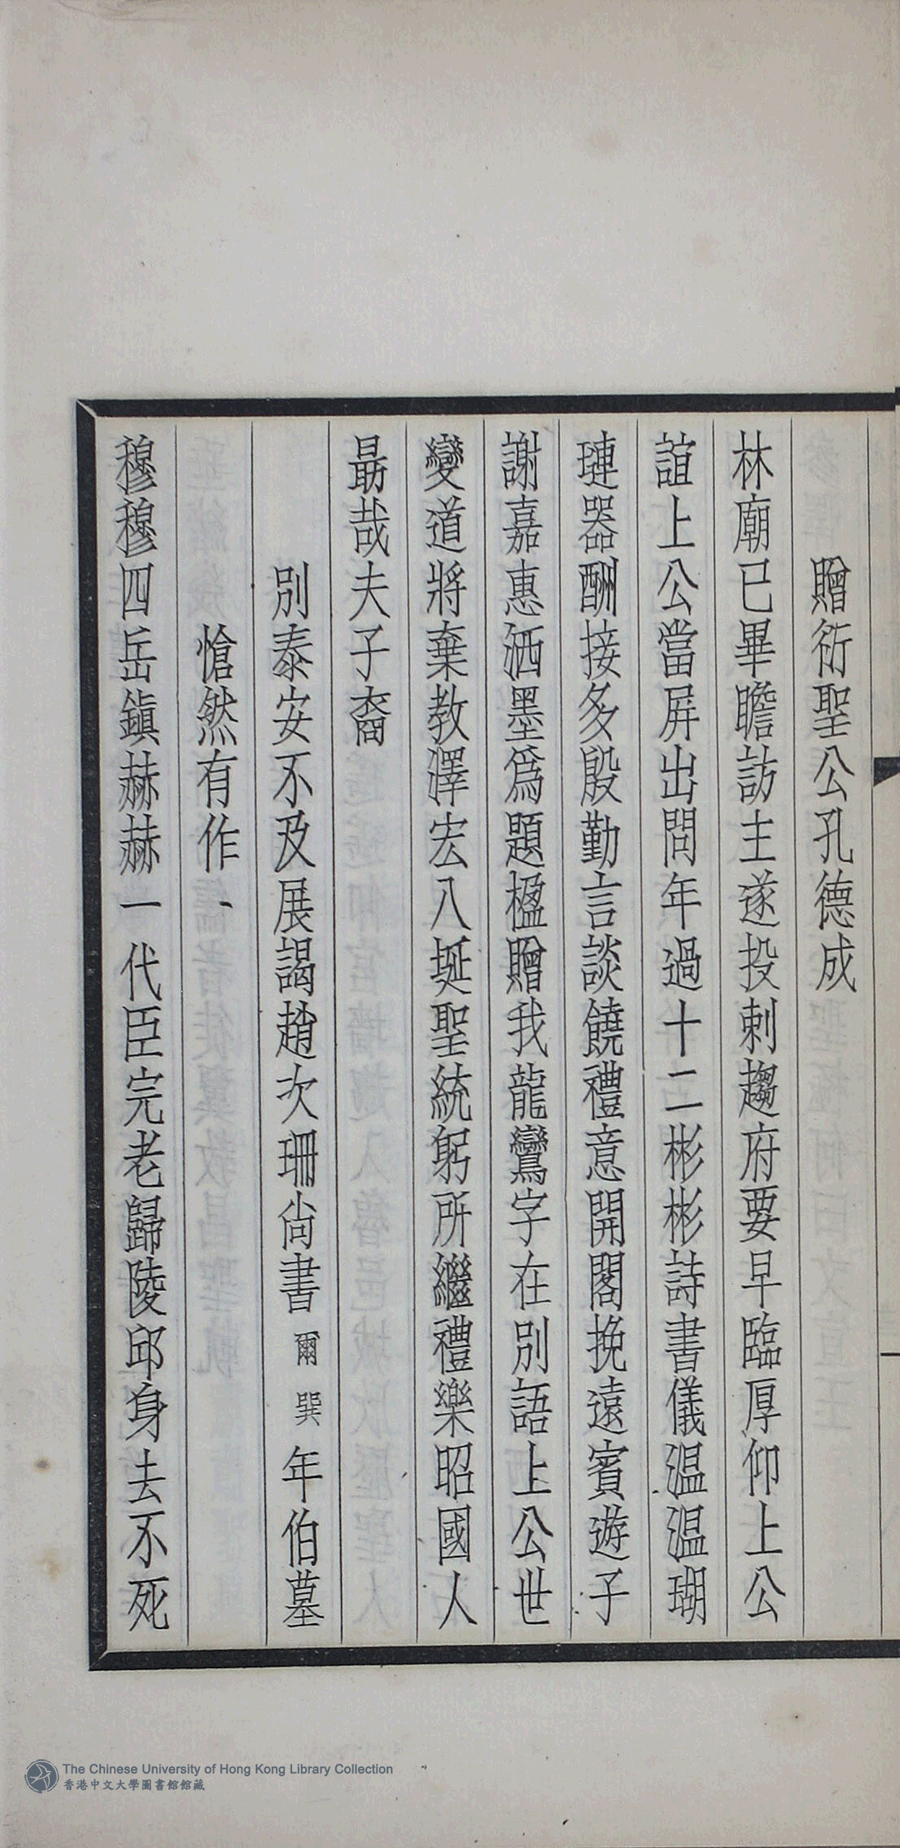 贈衍聖公孔德成
林廟已畢瞻訪主遂投刺趨府要早臨厚仰上公
誼上公當屏出問年過十二彬彬詩書儀温温瑚
璉器酬接多殷勤言談饒禮意開閣挽遠賓遊子
謝嘉惠洒墨爲題楹贈我龍鸞字在別語上公世
變道將棄教澤宏八埏聖統躬所繼禮樂昭國人
勗哉夫子裔
別泰安不及展謁趙次珊尙書爾巽年伯墓
愴然有作
穆穆四岳鎭赫赫一代臣完老歸陵邱身去不死
The Chinese University of Hong Kong Library Collection
香港中文大學圖書館館藏